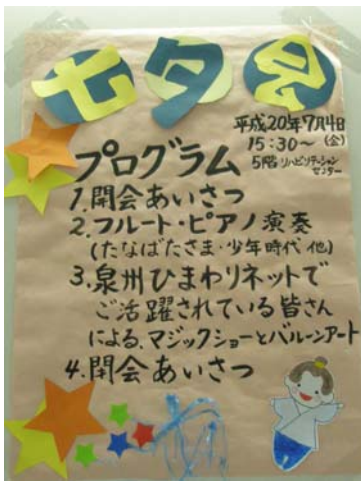 七夕会
平成20年7月4日
15:30～(金)
5階 リハビリテーション
センター
プログラム
1.開会あいさつ
2.フルート・ピアノ演奏
(たなばたさま・少年時代 他)
3.泉州ひまわりネットで
ご活躍されている皆さん
による、マジックショーとバルーンアート
4.閉会あいさつ